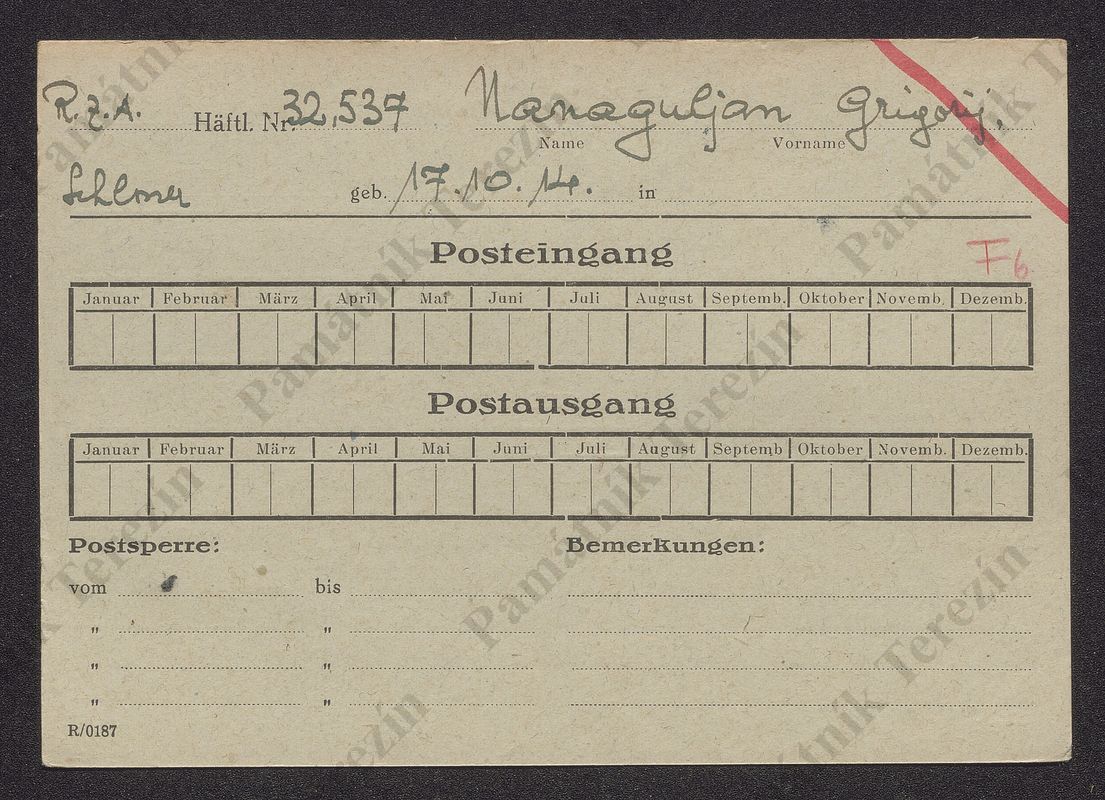 R.Z.A. Häftl. Nr. 32,537 Nanaguljan Grigorij.
Name Vorname
geb. 17.10.14. in
Posteingang
F6
Januar Februar März April Mai Juni Juli August Septemb. Oktober Novemb. Dezemb.
Postausgang
Januar Februar März April Mai Juni Juli August Septemb Oktober Novemb. Dezemb.
Postsperre: Bemerkungen:
vom bis
" "
" "
" "
R/0187
Památník Terezín